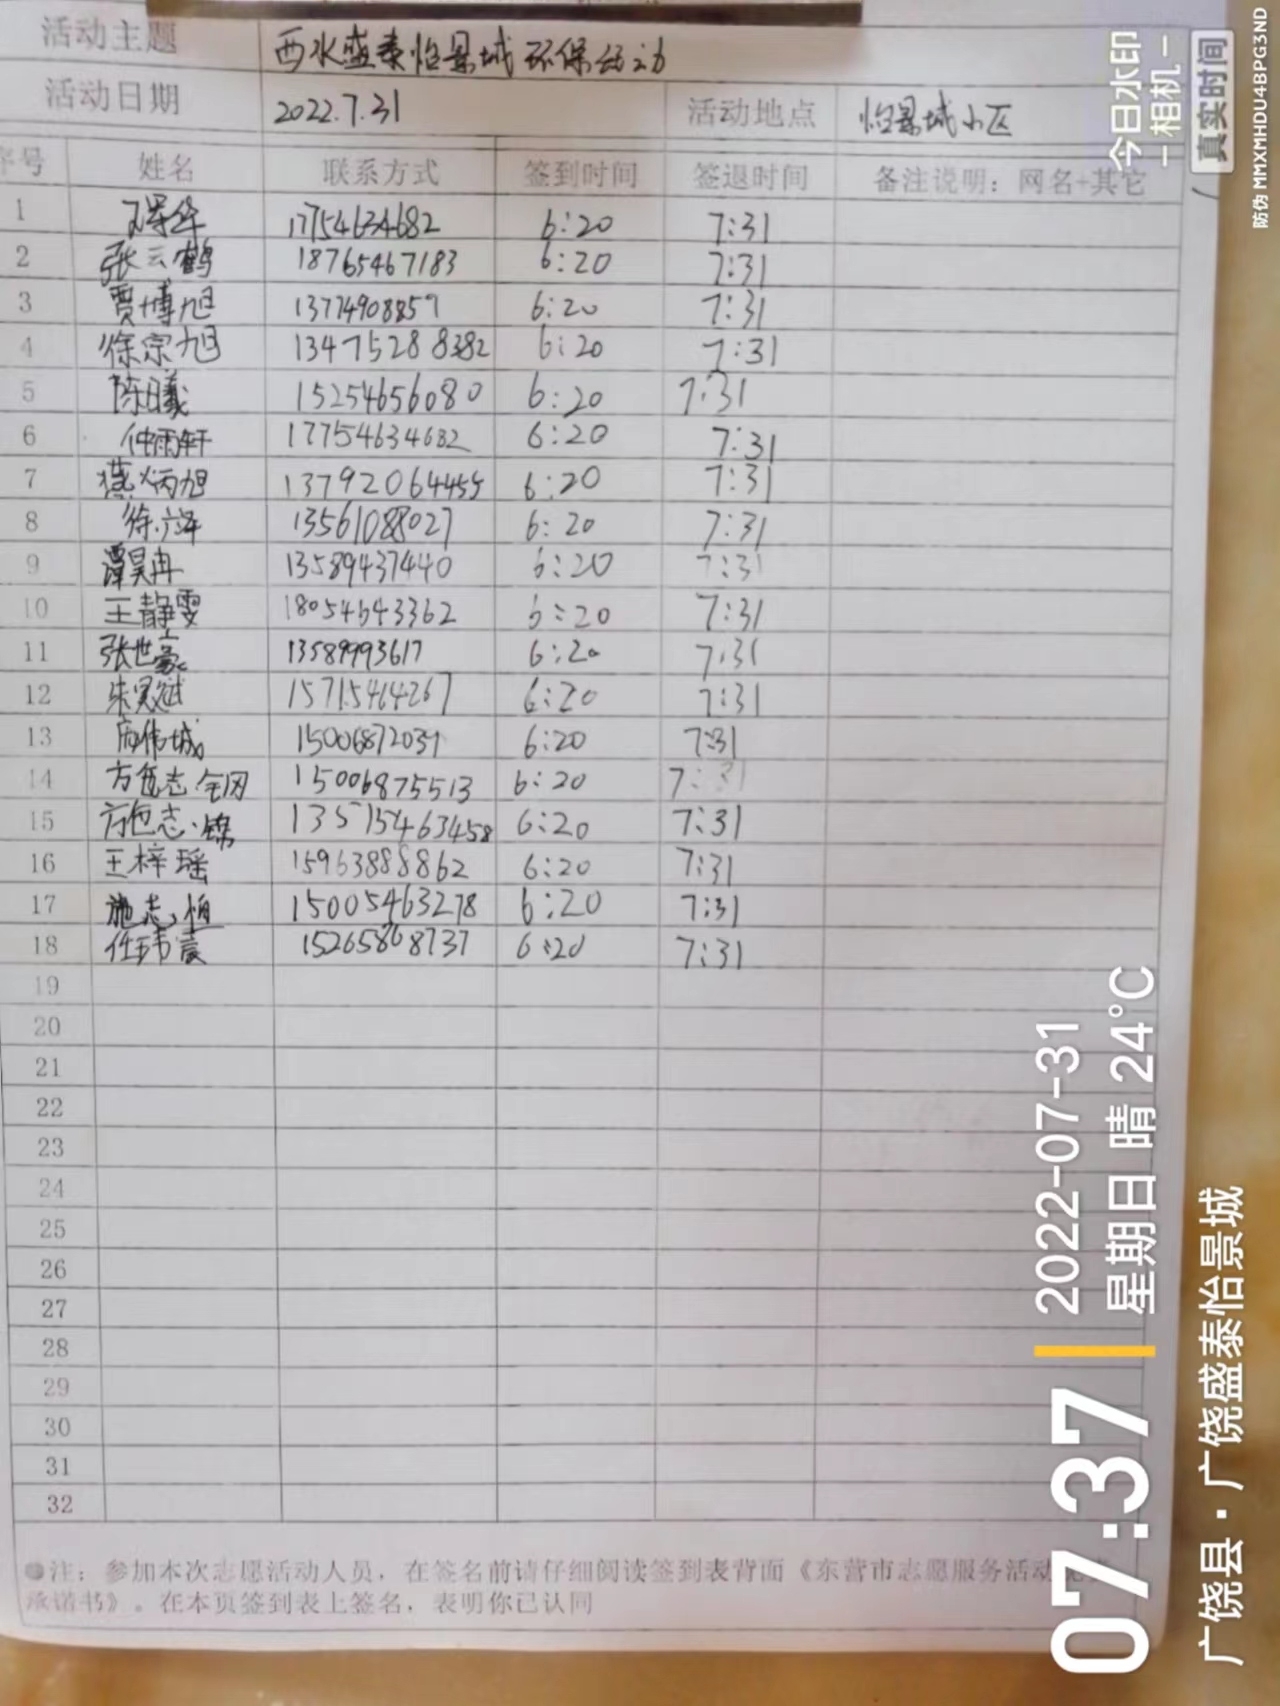 活动主题 西水盛泰怡景城环保活动
活动日期 2022.7.31 活动地点 怡景城小区
序号 姓名 联系方式 签到时间 签退时间 备注说明：网名+其它
1 17754634682 6:20 7:31
2 张云鹤 18765467183 6:20 7:31
3 贾博旭 13774908857 6:20 7:31
4 徐宗旭 13475288382 6:20 7:31
5 陈曦 15254656080 6:20 7:31
6 仲雨轩 17754634682 6:20 7:31
7 燕炳旭 13792064455 6:20 7:31
8 13561088027 6:20 7:31
9 谭昊冉 13589437440 6:20 7:31
10 王静雯 18054643362 6:20 7:31
11 张世豪 13589993617 6:20 7:31
12 15715464267 6:20 7:31
13 15006872037 6:20 7:31
14 15006875513 6:20 7:31
15 135715463458 6:20 7:31
16 王梓瑶 15963888862 6:20 7:31
17 施志恒 15005463278 6:20 7:31
18 15265868737 6:20 7:31
19
20
21
22
23
24
25
26
27
28
29
30
31
32
●注：参加本次志愿活动人员，在签名前请仔细阅读签到表背面《东营市志愿服务活动
承诺书》。在本页签到表上签名，表明你已认同
07:37
2022-07-31
星期日 晴 24℃
广饶县·广饶盛泰怡景城
今日水印
-相机-
真实时间
防伪 MMXMHDU4BPG3ND